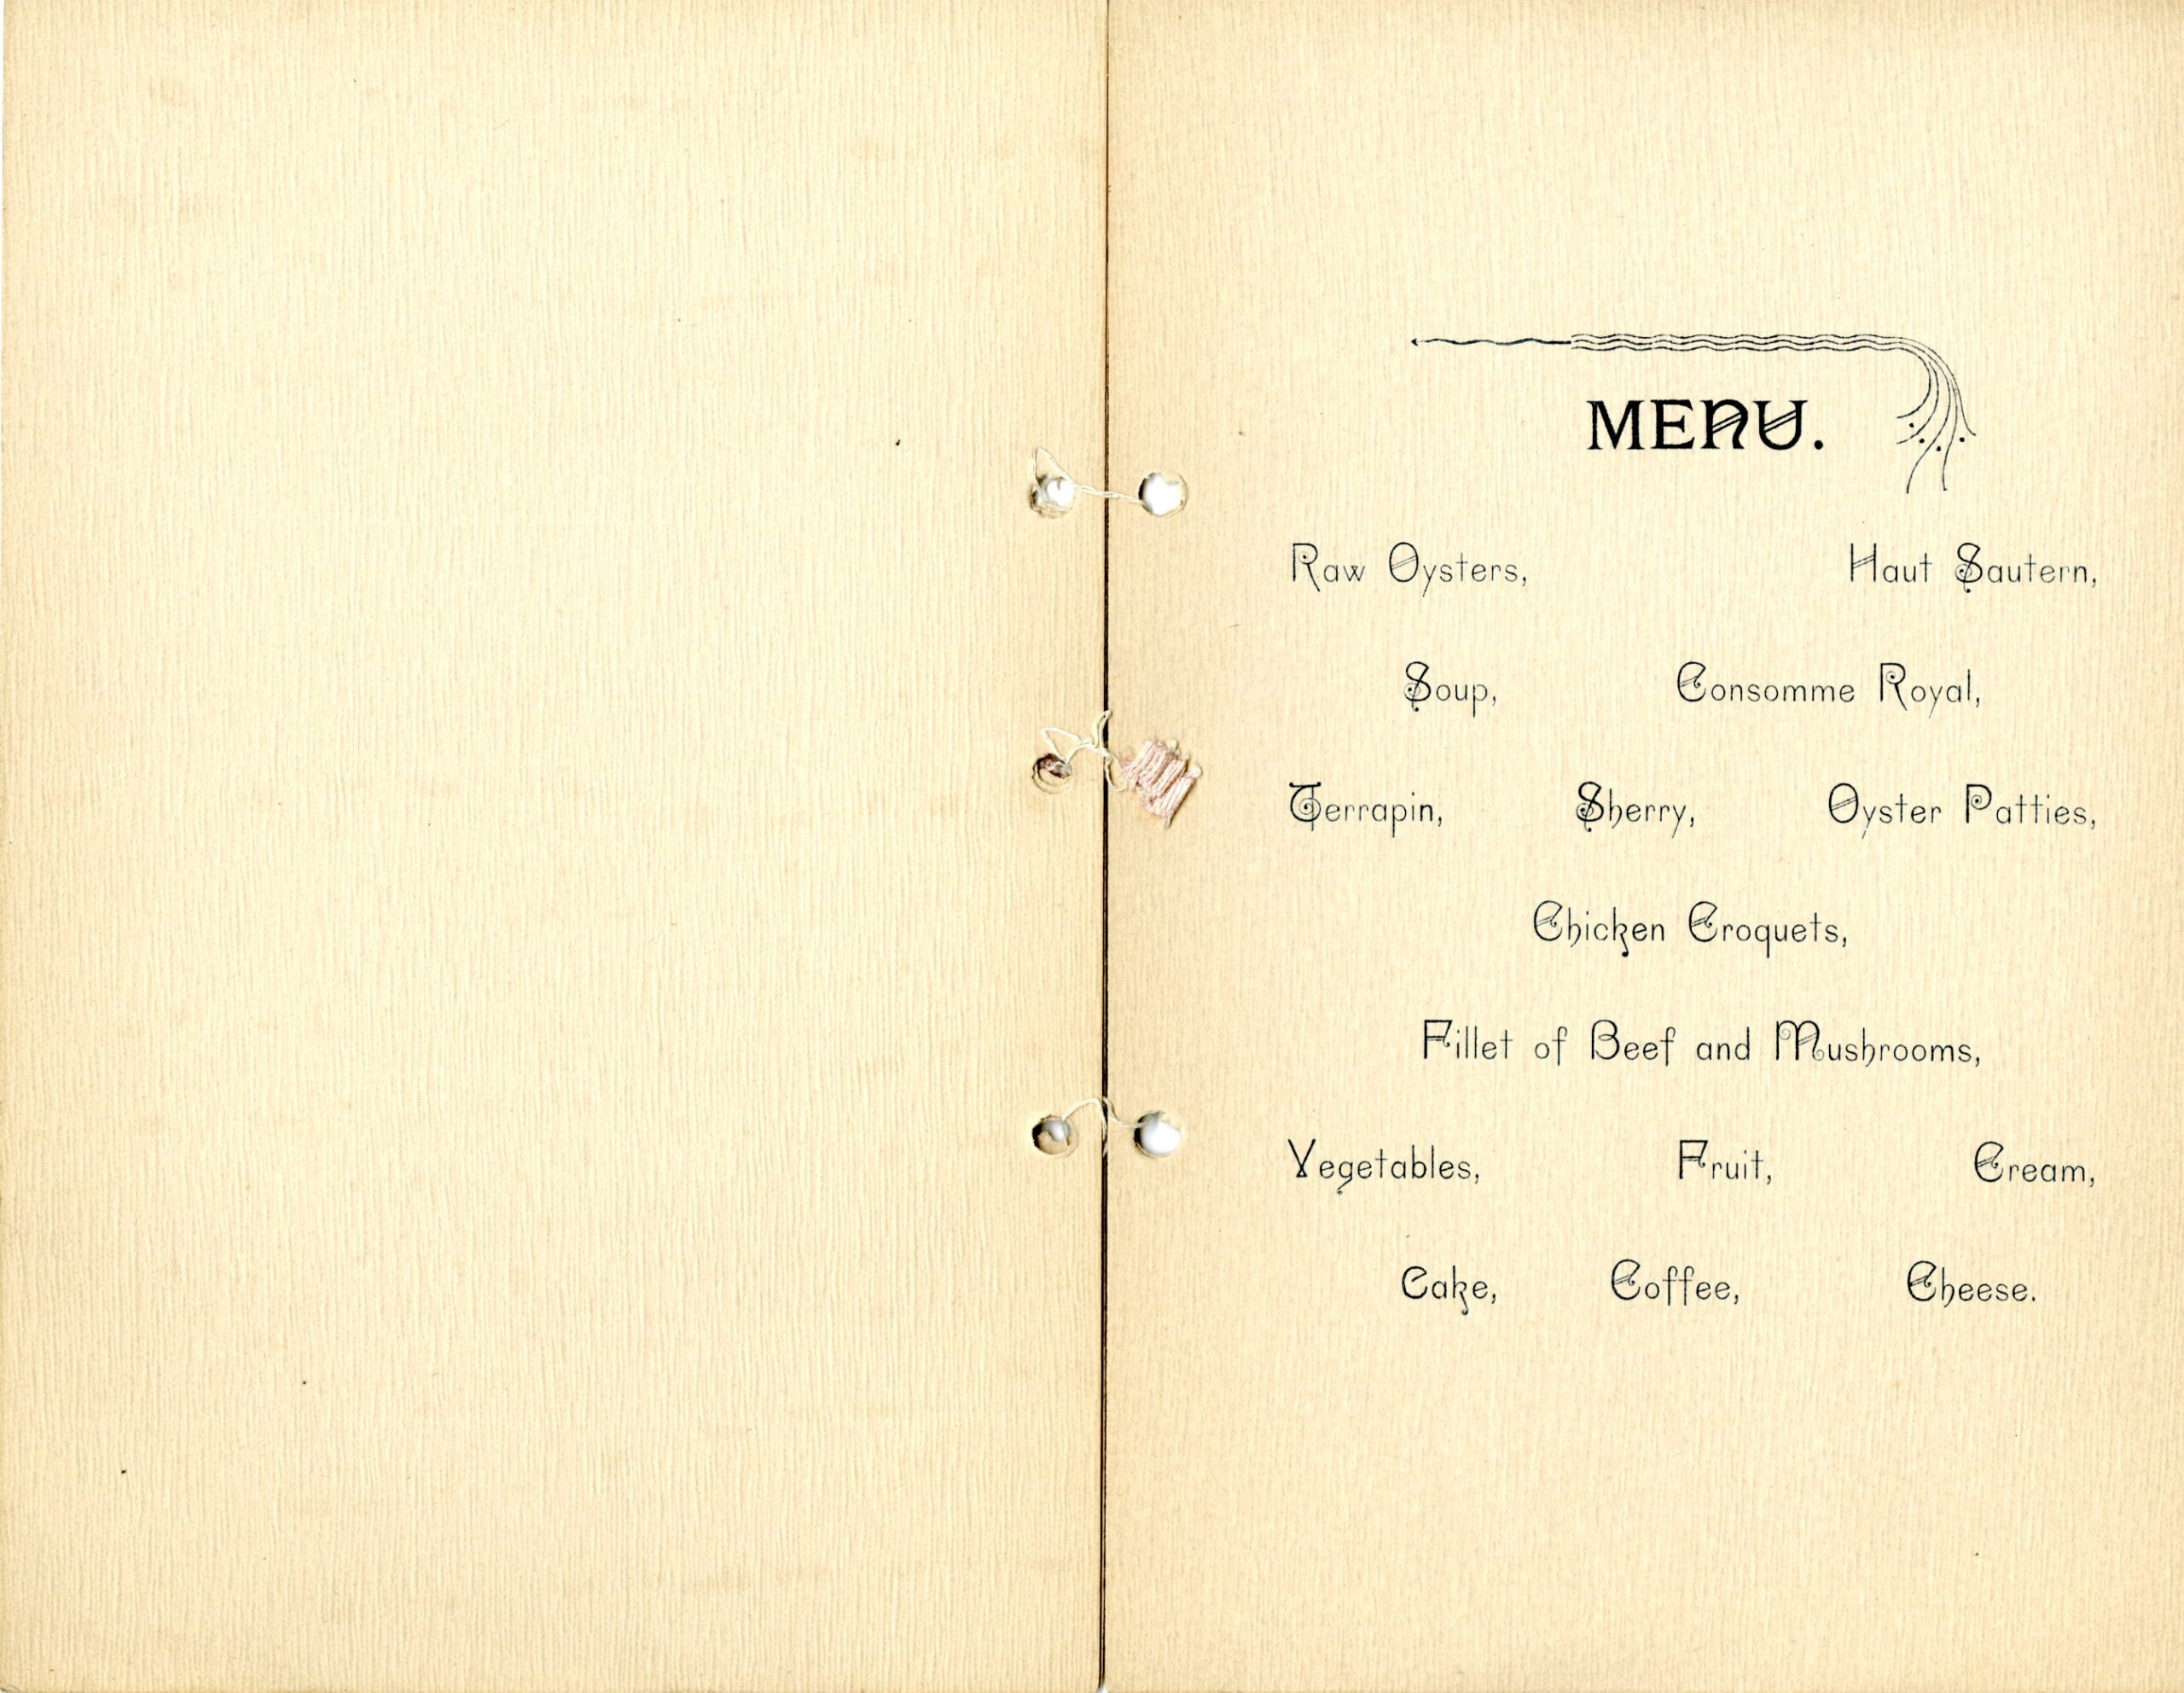 MENU.
Raw Oysters, Haut Sautern,
Soup, Consomme Royal,
Terrapin, Sherry, Oyster Patties,
Chicken Croquets,
Fillet of Beef and Mushrooms,
Vegetables, Fruit, Cream,
Cake, Coffee, Cheese.